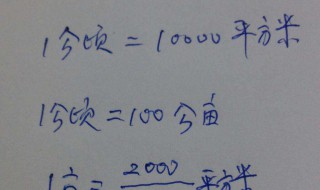 1公顷 = 10000平方米
1公顷 = 100公亩
1亩 = 2000 平方米